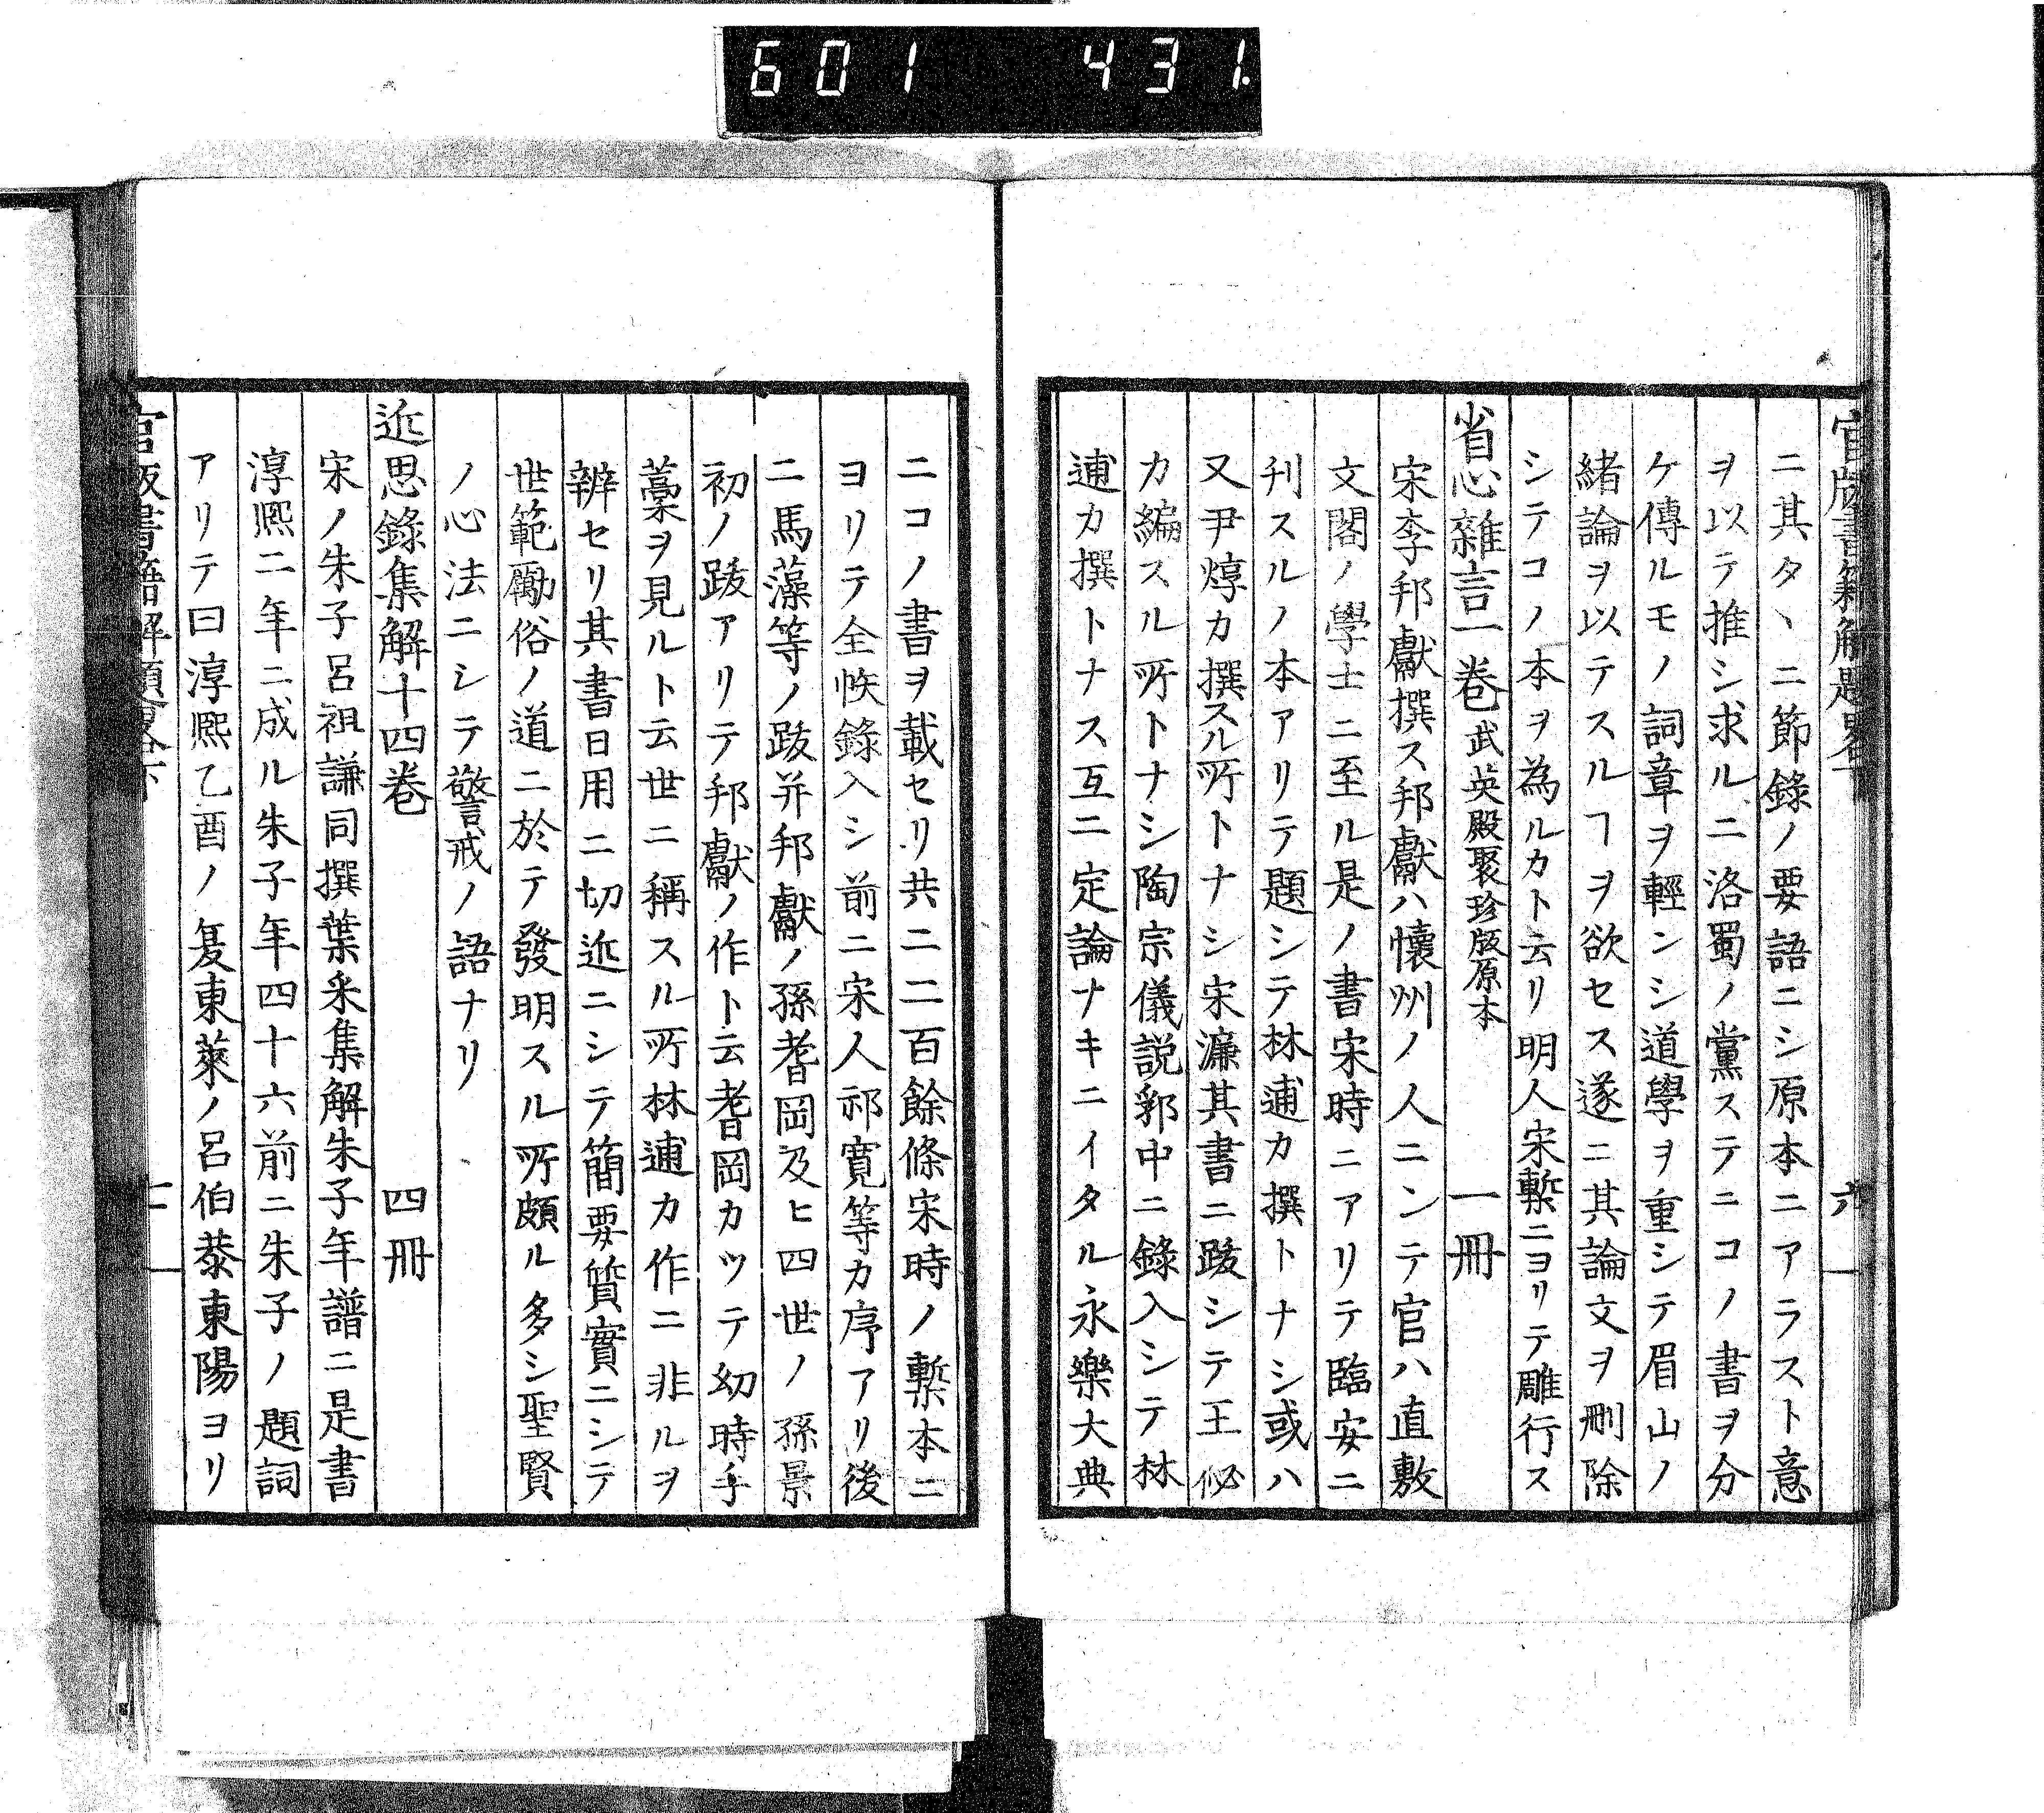 601 431.
官版書籍解題畧下 六
ニ其タヽニ節錄ノ要語ニシ原本ニアラスト意
ヲ以テ推シ求ルニ洛蜀ノ黨ステニコノ書ヲ分
ケ傳ルモノ詞章ヲ輕ンシ道學ヲ重シテ眉山ノ
緒論ヲ以テスルヿヲ欲セス遂ニ其論文ヲ刪除
シテコノ本ヲ為ルカト云リ明人宋槧ニヨリテ雕行ス
省心雜言一巻 武英殿聚珍版原本 一冊
宋李邦獻撰ス邦獻ハ懷州ノ人ニンテ官ハ直敷
文閣ノ學士ニ至ル是ノ書宋時ニアリテ臨安ニ
刊スルノ本アリテ題シテ林逋カ撰トナシ或ハ
又尹焞カ撰スル所トナシ宋濂其書ニ跋シテ王佖
カ編スル所トナシ陶宗儀説郛中ニ錄入シテ林
逋カ撰トナス互ニ定論ナキニイタル永樂大典
ニコノ書ヲ載セリ共ニ二百餘條宋時ノ槧本ニ
ヨリテ全帙錄入シ前ニ宋人祁寛等カ序アリ後
ニ馬藻等ノ跋并邦獻ノ孫耆岡及ヒ四世ノ孫景
初ノ跋アリテ邦獻ノ作ト云耆岡カツテ幼時手
藁ヲ見ルト云世ニ稱スル所林逋カ作ニ非ルヲ
辨セリ其書日用ニ切近ニシテ簡要質實ニシテ
世範勵俗ノ道ニ於テ發明スル所頗ル多シ聖賢
ノ心法ニシテ警戒ノ語ナリ
近思錄集解十四巻 四冊
宋ノ朱子呂祖謙同撰葉采集解朱子年譜ニ是書
淳熙二年ニ成ル朱子年四十六前ニ朱子ノ題詞
アリテ曰淳熙乙酉ノ夏東萊ノ呂伯恭東陽ヨリ
官版書籍解題畧下 七